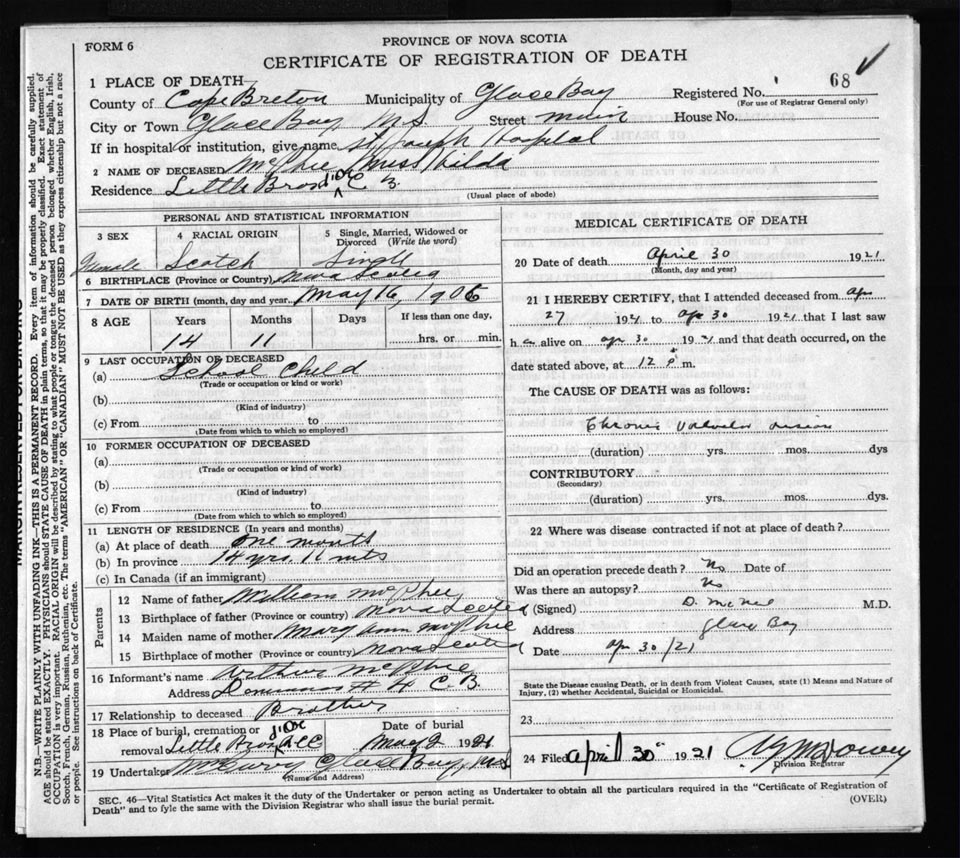 FORM 6
PROVINCE OF NOVA SCOTIA
CERTIFICATE OF REGISTRATION OF DEATH
1 PLACE OF DEATH
Registered No. 68
(For use of Registrar General only)
County of Cape Breton Municipality of Glace Bay
City or Town Glace Bay, N.S. Street Main House No.
If in hospital or institution, give name St Joseph Hospital
2 NAME OF DECEASED McPhee Miss Hilda
Residence Little Bras dior C B.
(Usual place of abode)
PERSONAL AND STATISTICAL INFORMATION
3 SEX 4 RACIAL ORIGIN 5 Single, Married, Widowed or Divorced (Write the word)
Female Scotch Single
6 BIRTHPLACE (Province or Country) Nova Scotia
7 DATE OF BIRTH (month, day and year) May 16, 1906
8 AGE Years Months Days If less than one day,
14 11 hrs. or min.
9 LAST OCCUPATION OF DECEASED
(a) School Child
(Trade or occupation or kind of work)
(b)
(Kind of industry)
(c) From to
(Date from which to which so employed)
10 FORMER OCCUPATION OF DECEASED
(a)
(Trade or occupation or kind of work)
(b)
(Kind of industry)
(c) From to
(Date from which to which so employed)
11 LENGTH OF RESIDENCE (In years and months)
(a) At place of death One month
(b) In province 14 yrs, 11 mts
(c) In Canada (if an immigrant)
Parents
12 Name of father William McPhee
13 Birthplace of father (Province or country) Nova Scotia
14 Maiden name of mother Mary Ann McPhie
15 Birthplace of mother (Province or country) Nova Scotia
16 Informant's name Arthur McPhee
Address Dominion # 4 C.B.
17 Relationship to deceased Brother
18 Place of burial, cremation or removal Little Bras dior CB Date of burial May 2 1921
19 Undertaker Glace Bay, N.S
(Name and Address)
MEDICAL CERTIFICATE OF DEATH
20 Date of death April 30 1921
(Month, day and year)
21 I HEREBY CERTIFY, that I attended deceased from Apr
27 1921 to Apr 30 1921 that I last saw
h er alive on apr 30 1921 and that death occurred, on the
date stated above, at 12 m.
The CAUSE OF DEATH was as follows:
Chronic Valvular
(duration) yrs. mos. dys
CONTRIBUTORY
(Secondary)
(duration) yrs. mos. dys.
22 Where was disease contracted if not at place of death?
Did an operation precede death? No Date of
Was there an autopsy? No
(Signed) D. McNeil M.D.
Address Glace Bay
Date Apr 30/21
State the Disease causing Death, or in death from Violent Causes, state (1) Means and Nature of
Injury, (2) whether Accidental, Suicidal or Homicidal.
23
24 Filed April 30 1921
Division Registrar
SEC. 46—Vital Statistics Act makes it the duty of the Undertaker or person acting as Undertaker to obtain all the particulars required in the "Certificate of Registration of
Death" and to fyle the same with the Division Registrar who shall issue the burial permit.
(OVER)
MARGIN RESERVED FOR BINDING
N.B.—WRITE PLAINLY WITH UNFADING INK—THIS IS A PERMANENT RECORD. Every item of information should be carefully supplied.
AGE should be stated EXACTLY. PHYSICIANS should STATE CAUSE OF DEATH in plain terms, so that it may be properly classified. Exact statement of
OCCUPATION is very important. RACIAL ORIGIN will be described by stating to what people or tongue the deceased person belonged whether English, Irish,
Scotch, French, German, Russian, Ruthenian, etc. The terms "AMERICAN" OR "CANADIAN" MUST NOT BE USED as they express citizenship but not a race
or people. See instructions on back of Certificate.